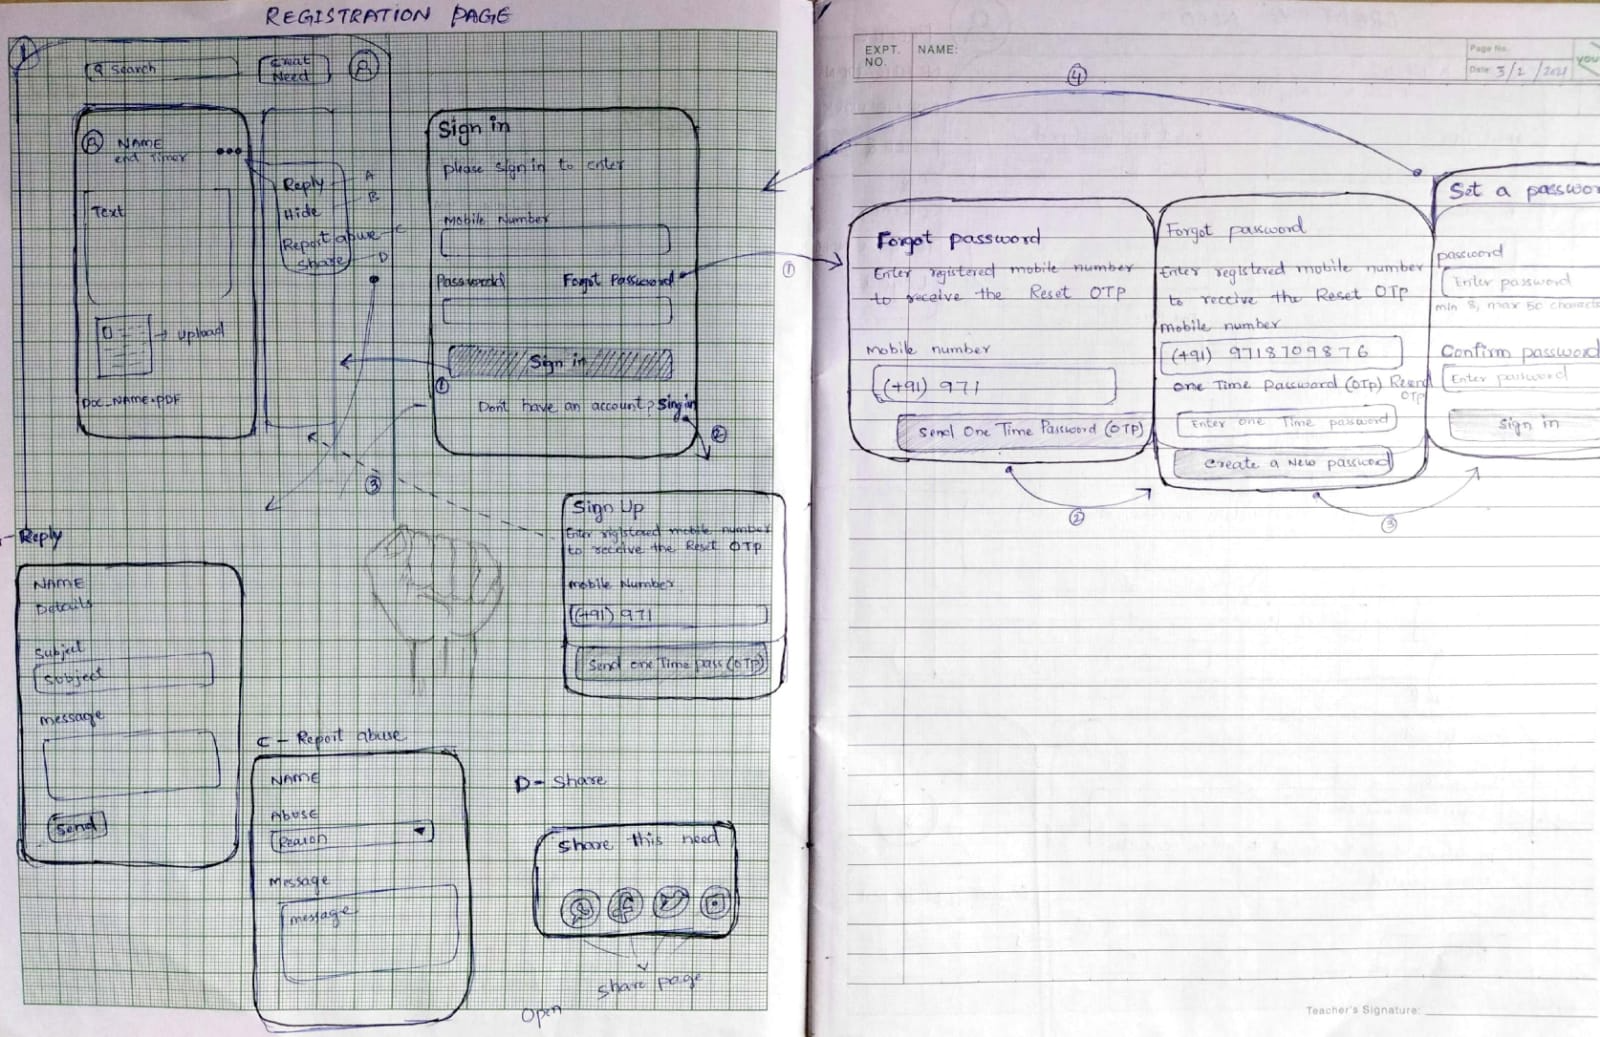 REGISTRATION PAGE
1
Search
Creat
Need
NAME
end Timer
Text
→ Upload
DOC_NAME.PDF
Reply A
Hide B
Report abuse C
Share D
Sign in
please sign in to enter
Mobile Number
Password Forgot Password
Sign in
①
Don't have an account?
②
③
Sign Up
Enter registered mobile number
to receive the Reset OTP
mobile Number
(+91) 971
Send one Time pass (OTP)
Reply
NAME
Details
Subject
Subject
message
Send
C - Report abuse
NAME
Abuse
Reason
Message
message
D - Share
Share this need
share page
Open
EXPT.
NO.
NAME:
Page No.
Date: 3/2/2021
you
④
①
Forgot password
Enter registered mobile number
to receive the Reset OTP
Mobile number
(+91) 971
Send One Time Password (OTP)
②
Forgot password
Enter registered mobile number
to receive the Reset OTP
Mobile number
(+91) 9718709876
One Time Password (OTP) Resend
OTP
Enter one Time password
Create a New password
③
Set a passwor
password
Enter password
min 8, max 50 characte
Confirm password
Enter password
Sign in
Teacher's Signature: